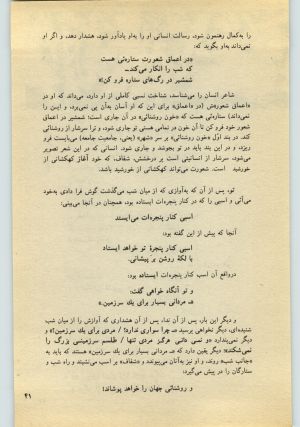 را به‌کمال رهنمون شود، رسالت انسانی او را به‌او یادآور شود، هشدار دهد، و اگر او
نمی‌داند به‌او بگوید که:
«در اعماق شعورت ستاره‌ئی هست
که شب را انکار می‌کند...
شمشیر در رگ‌های ستاره فرو کن!»
شاعر انسان را می‌شناسد، شناخت نسبی کاملی از او دارد، می‌داند که او در
«اعماق» شعورش (در «اعماق» برای این که او آسان به‌آن پی نمی‌برد، و این را
نمی‌داند) ستاره‌ئی هست که «خون روشنائی» در آن جاری است؛ شمشیر در اعماق
شعور خود فرو کن تا آن خون در تمامی هستی تو جاری شود، و ترا سرشار از روشنائی
کند. در بند اول «خون روشنائی» بر سر «شهر» (یعنی، جامعیت جامعه) می‌بایست فرو
ریزد، و در این بند باید در تو بجوشد و جاری شود. انسانی که در این شعر تصویر
می‌شود، سرشار از انسانیتی است پر درخشش، شفاف، که خود آغاز کهکشانی از
خورشید است. شعورت می‌تواند کهکشانی از خورشید باشد.
تو، پس از آن که به‌آوازی که از میان شب می‌گذشت گوش فرا دادی به‌خود
می‌آئی و اسبی را که در کنار پنجره‌ات ایستاده بود، همچنان در آنجا می‌بینی:
اسبی کنار پنجره‌ات می‌ایستد
آنجا که پیش از این گفته بود:
اسبی کنار پنجرهٔ تو خواهد ایستاد
با لکهٔ روشن بر پیشانی.
درواقع آن اسبی کنار پنجره‌ات ایستاده بود.
و تو آنگاه خواهی گفت:
«ـ مردانی بسیار برای یك سرزمین.»
و دیگر این بار، پس از آن ندا، پس از آن هشداری که آوازش را از میان شب
شنیده‌ای، دیگر نخواهی پرسید «ـ چرا سواری ندارد؟ / مردی برای یك سرزمین؟» و
دیگر نمی‌پندارد «و نمی دانی هرگز مردی تنها / طلسم سرزمینی بزرگ را
نمی‌شکند» دیگر یقین دارد که «ـ مردانی بسیار برای یك سرزمین» هستند که باید به
«جانب شب» روند، و او نیز به‌آنان می‌پیوندد و «شفاف» بر اسب می‌نشیند و راه شب و
ستارگان را در پیش می‌گیرد:
و روشنائی جهان را خواهد پوشاند!
۴۱